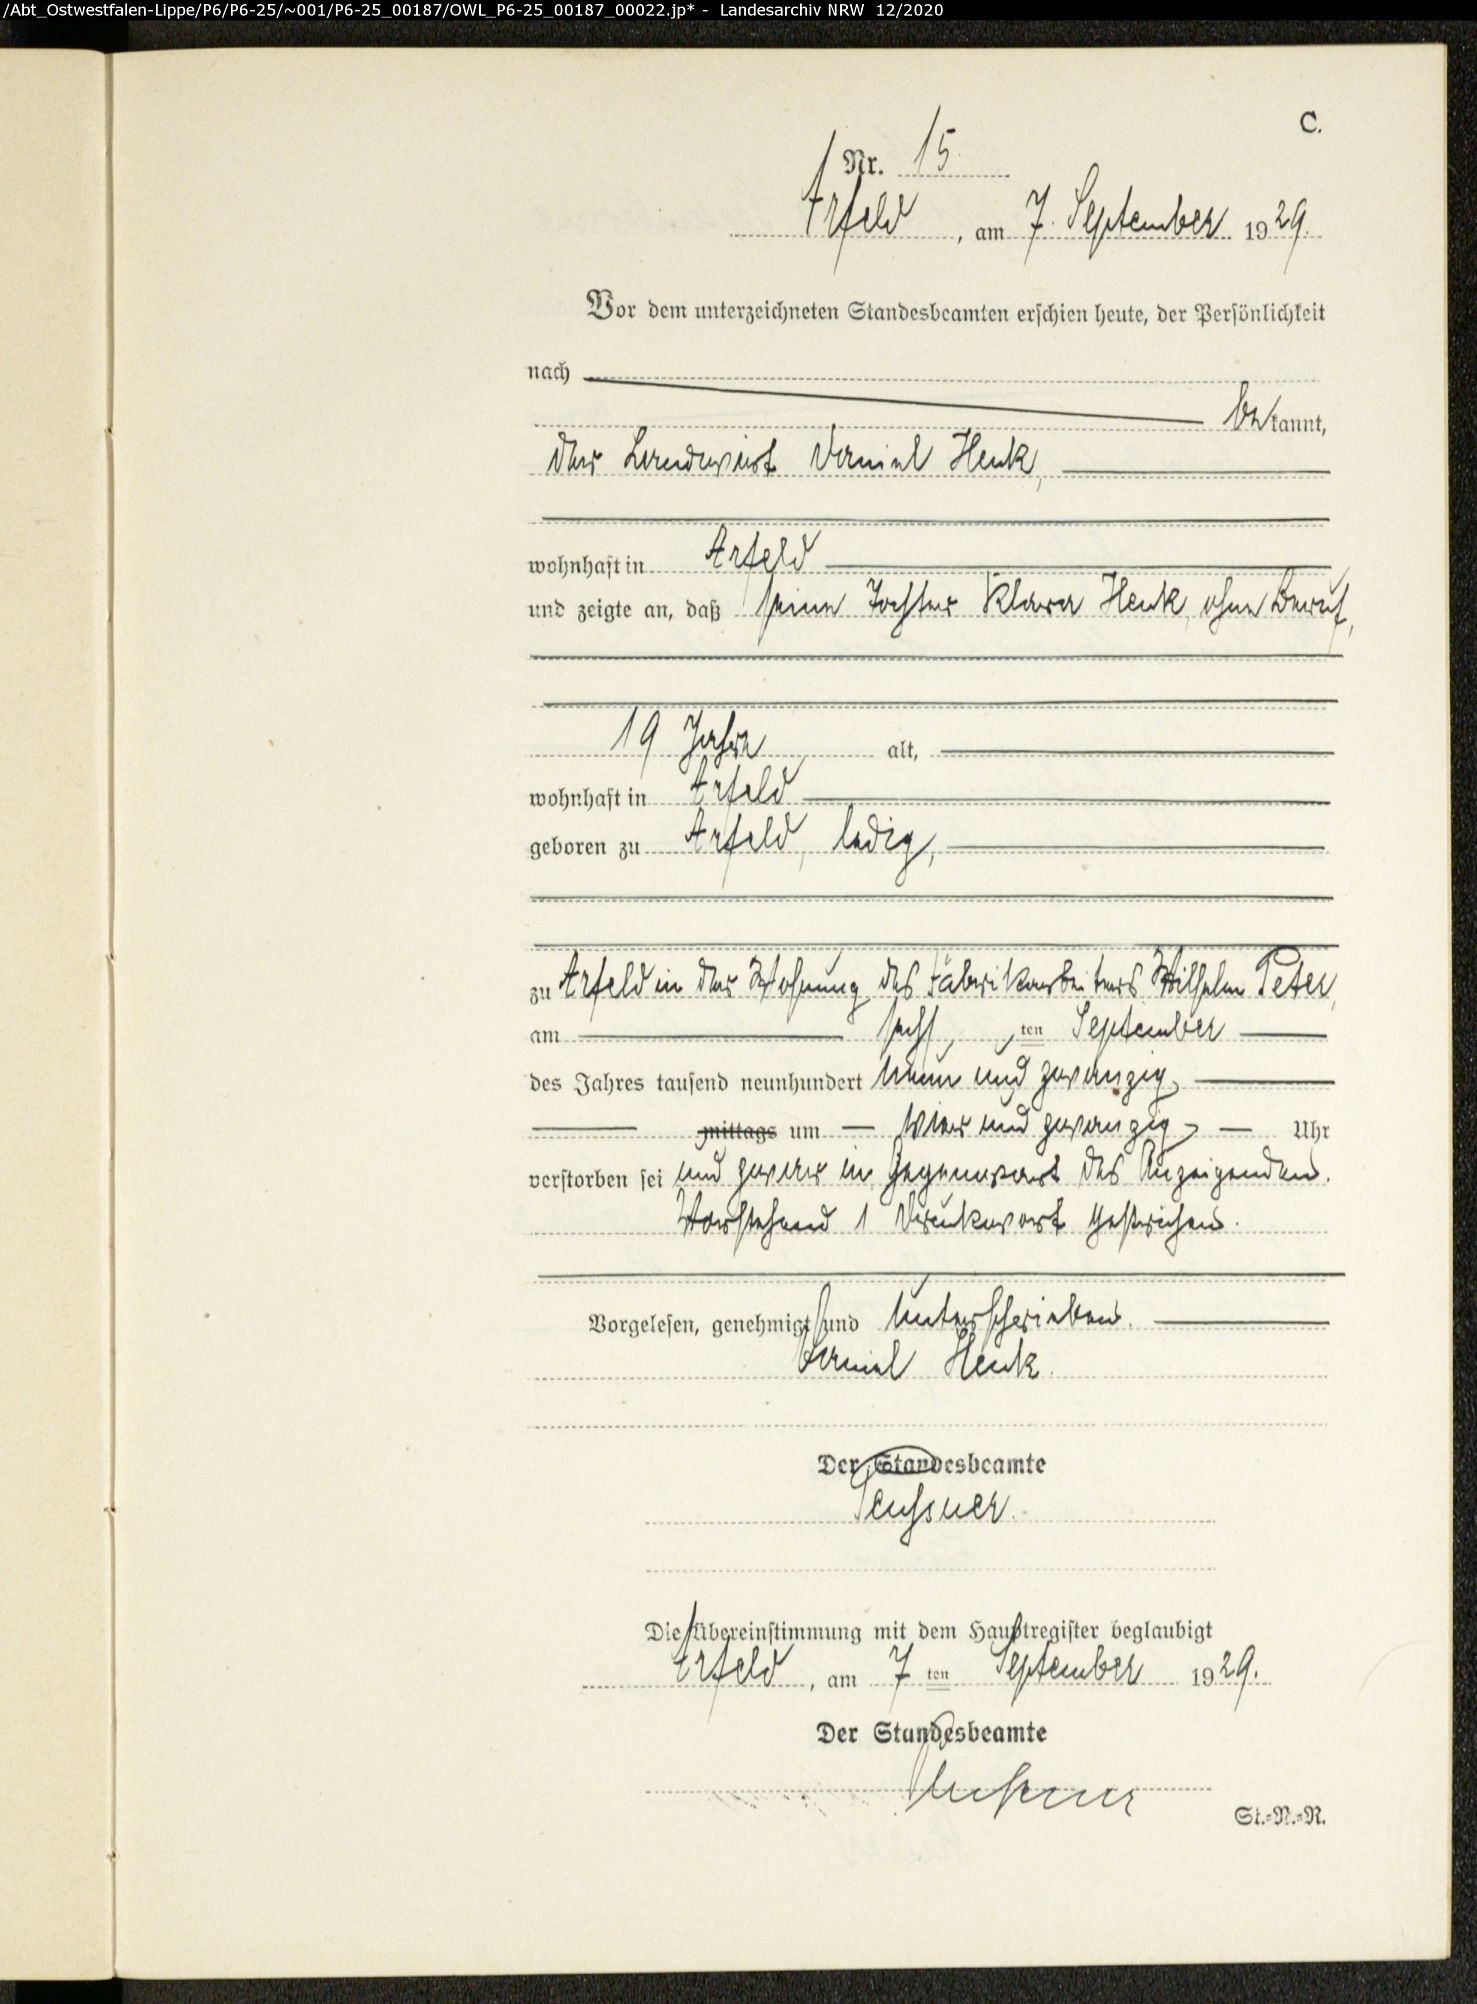 /Abt_Ostwestfalen-Lippe/P6/P6-25/~001/P6-25_00187/OWL_P6-25_00187_00022.jp* - Landesarchiv NRW 12/2020
C.
Nr. 15
Arfeld, am 7. September 1929.
Vor dem unterzeichneten Standesbeamten erschien heute, der Persönlichkeit
nach
bekannt,
der Landwirt Daniel Henk,
wohnhaft in Arfeld
und zeigte an, daß seine Tochter Klara Henk, ohne Beruf,
19 Jahre alt,
wohnhaft in Arfeld
geboren zu Arfeld, ledig,
zu Arfeld in der Wohnung des Fabrikarbeiters Wilhelm Peter,
am sechsten September
des Jahres tausend neunhundert neun und zwanzig,
mittags um vier und zwanzig Uhr
verstorben sei und zwar in Gegenwart des Anzeigenden.
Vorstehend 1 Druckwort gestrichen.
Vorgelesen, genehmigt und unterschrieben.
Daniel Henk.
Der Standesbeamte
Die Übereinstimmung mit dem Hauptregister beglaubigt
Arfeld, am 7ten September 1929.
Der Standesbeamte
St.=N.=R.